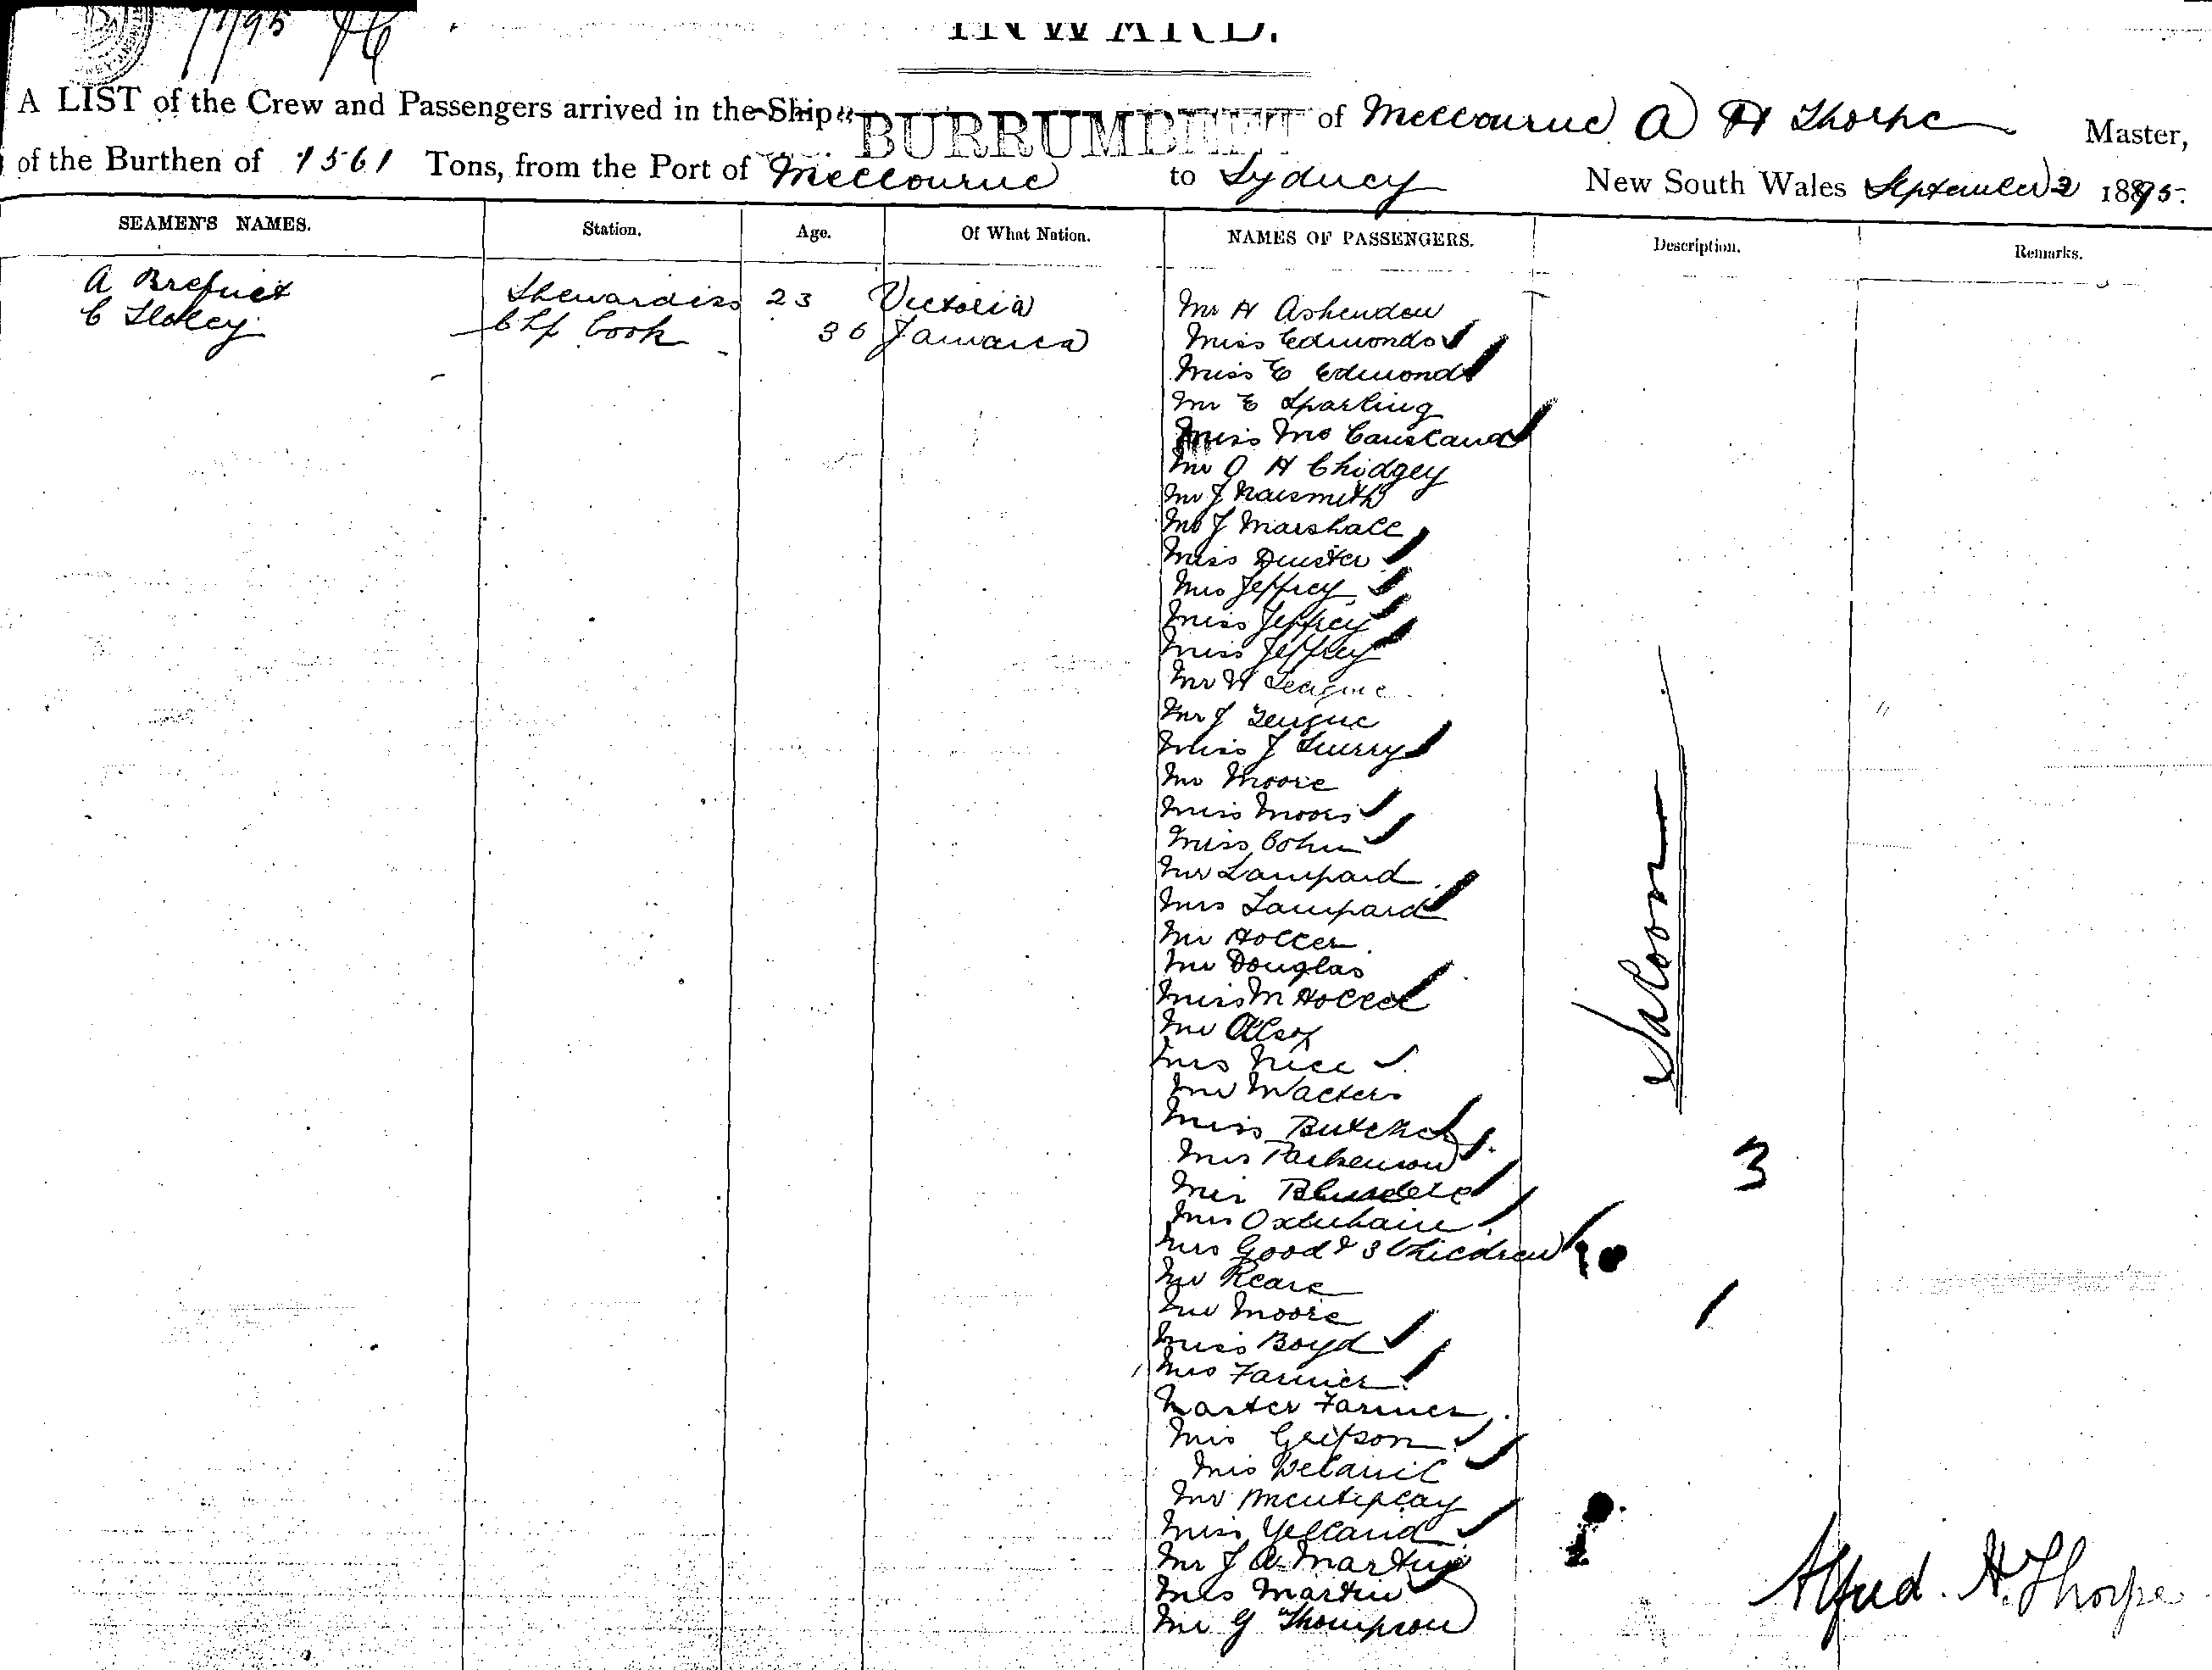 7/95
INWARD.
A LIST of the Crew and Passengers arrived in the Ship "BURRUMBEET of Melbourne A H Thorpe Master,
of the Burthen of 1561 Tons, from the Port of Melbourne to Sydney New South Wales September 2 1895.
SEAMEN'S NAMES. Station. Age. Of What Nation. NAMES OF PASSENGERS. Description. Remarks.
A Stewardess 23 Victoria
C Cook 36 Jamaica
Mr H Ashenden
Miss Edmonds
Miss E Edmonds
Mr E Sparling
Miss Mc Causland
Mr O H Chidgey
Mr J Naismith
Mr J Marshall
Miss Duster
Mrs Jeffrey
Miss Jeffrey
Miss Jeffrey
Mr H League
Mr J Teague
Miss J
Mr Moore
Miss Moore
Miss Cohn
Mr Lampard
Mrs Lampard
Mr Holler
Mr Douglas
Miss M
Mr Alsop
Mrs Nice
Mr Walters
Miss Butcher
Mrs Parkenson
Mrs Blundell
Mrs
Mrs Good & 3 Children
Mr
Mr Moore
Miss Boyd
Mrs Farmer
Master Farmer
Mrs
Mrs
Mr Mentiplay
Miss Yelland
Mr J A Martin
Mrs Martin
Mr G Thompson
Saloon
3
1
Alfred. H. Thorpe